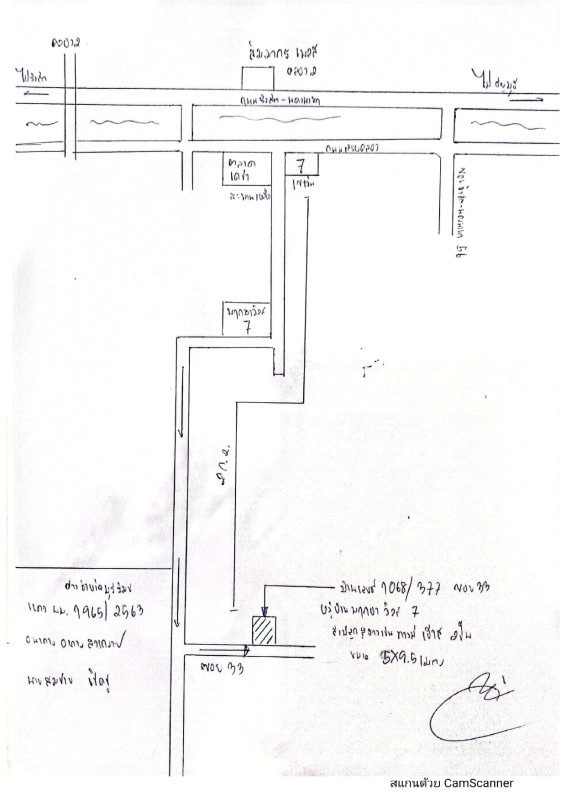 คลอง 2
สัมมากร เพลส
คลอง 2
ไปรังสิต
ไป ธัญบุรี
ถนนรังสิต - นครนายก
ถนนเลียบคลอง
ตลาด
7
เซเว่น
ซอย รังสิต-นครนายก
พฤกษาวิลล์
7
2 ก.ม.
ศาลจังหวัดธัญบุรี
1965/2563
ธนาคาร อาคารสงเคราะห์
นายสมชาย
บ้านเลขที่ 1068/377 ซอย 33
หมู่บ้าน พฤกษา วิลล์ 7
ทาวน์ เฮ้าส์ 2 ชั้น
ขนาด 5X9.5 เมตร
ซอย 33
สแกนด้วย CamScanner